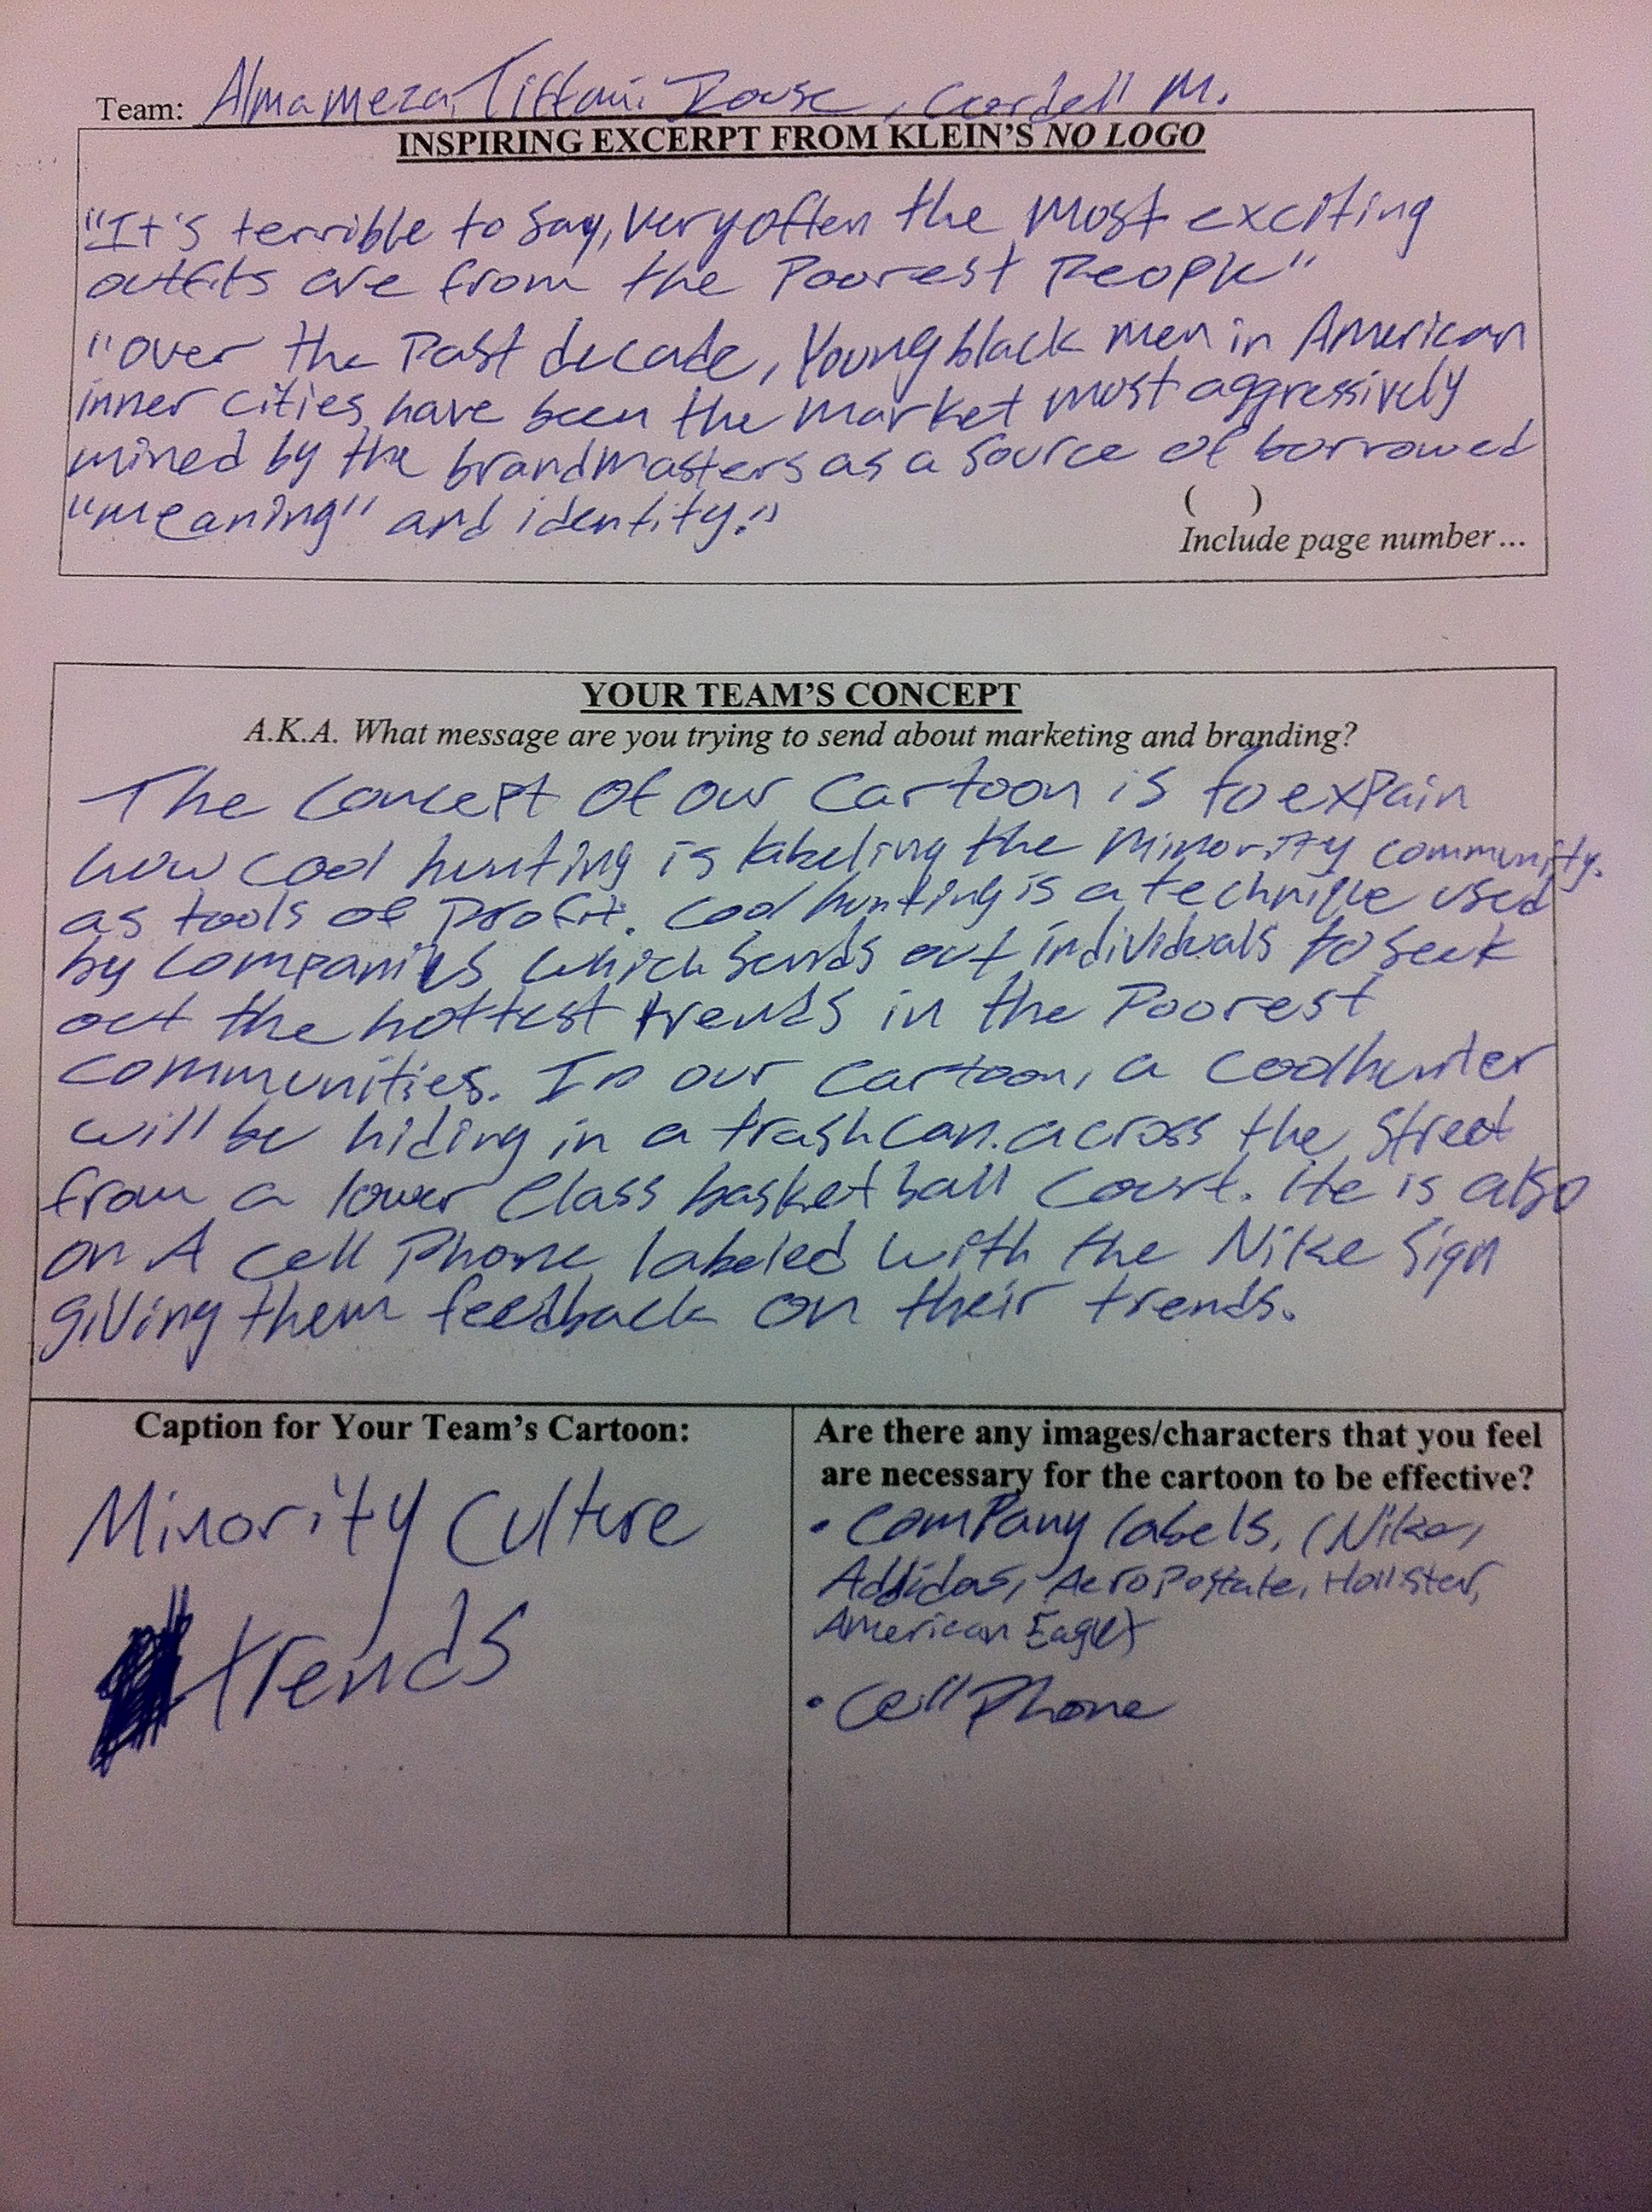 Team: Alma meza, Tiffani , Cordell M.
INSPIRING EXCERPT FROM KLEIN'S NO LOGO
"It's terrible to say, very often the most exciting
outfits are from the Poorest People"
"over the Past decade, Young black men in American
inner cities have been the market most aggressively
mined by the brandmasters as a source of borrowed
"meaning" and identity."
( )
Include page number...
YOUR TEAM'S CONCEPT
A.K.A. What message are you trying to send about marketing and branding?
The concept of our Cartoon is to expain
how cool hunting is labeling the minority community.
as tools of Profit. Cool hunting is a technique used
by companies which sends out individuals to seek
out the hottest trends in the Poorest
communities. In our cartoon, a coolhunter
will be hiding in a trash can. across the street
from a lower Class basketball Court. He is also
on A cell Phone labeled with the Nike Sign
giving them feedback on their trends.
Caption for Your Team's Cartoon:
Minority Culture
trends
Are there any images/characters that you feel
are necessary for the cartoon to be effective?
• Company labels, (Nike,
Addidas, AeroPostale, Hollister,
American Eagle)
• Cell Phone